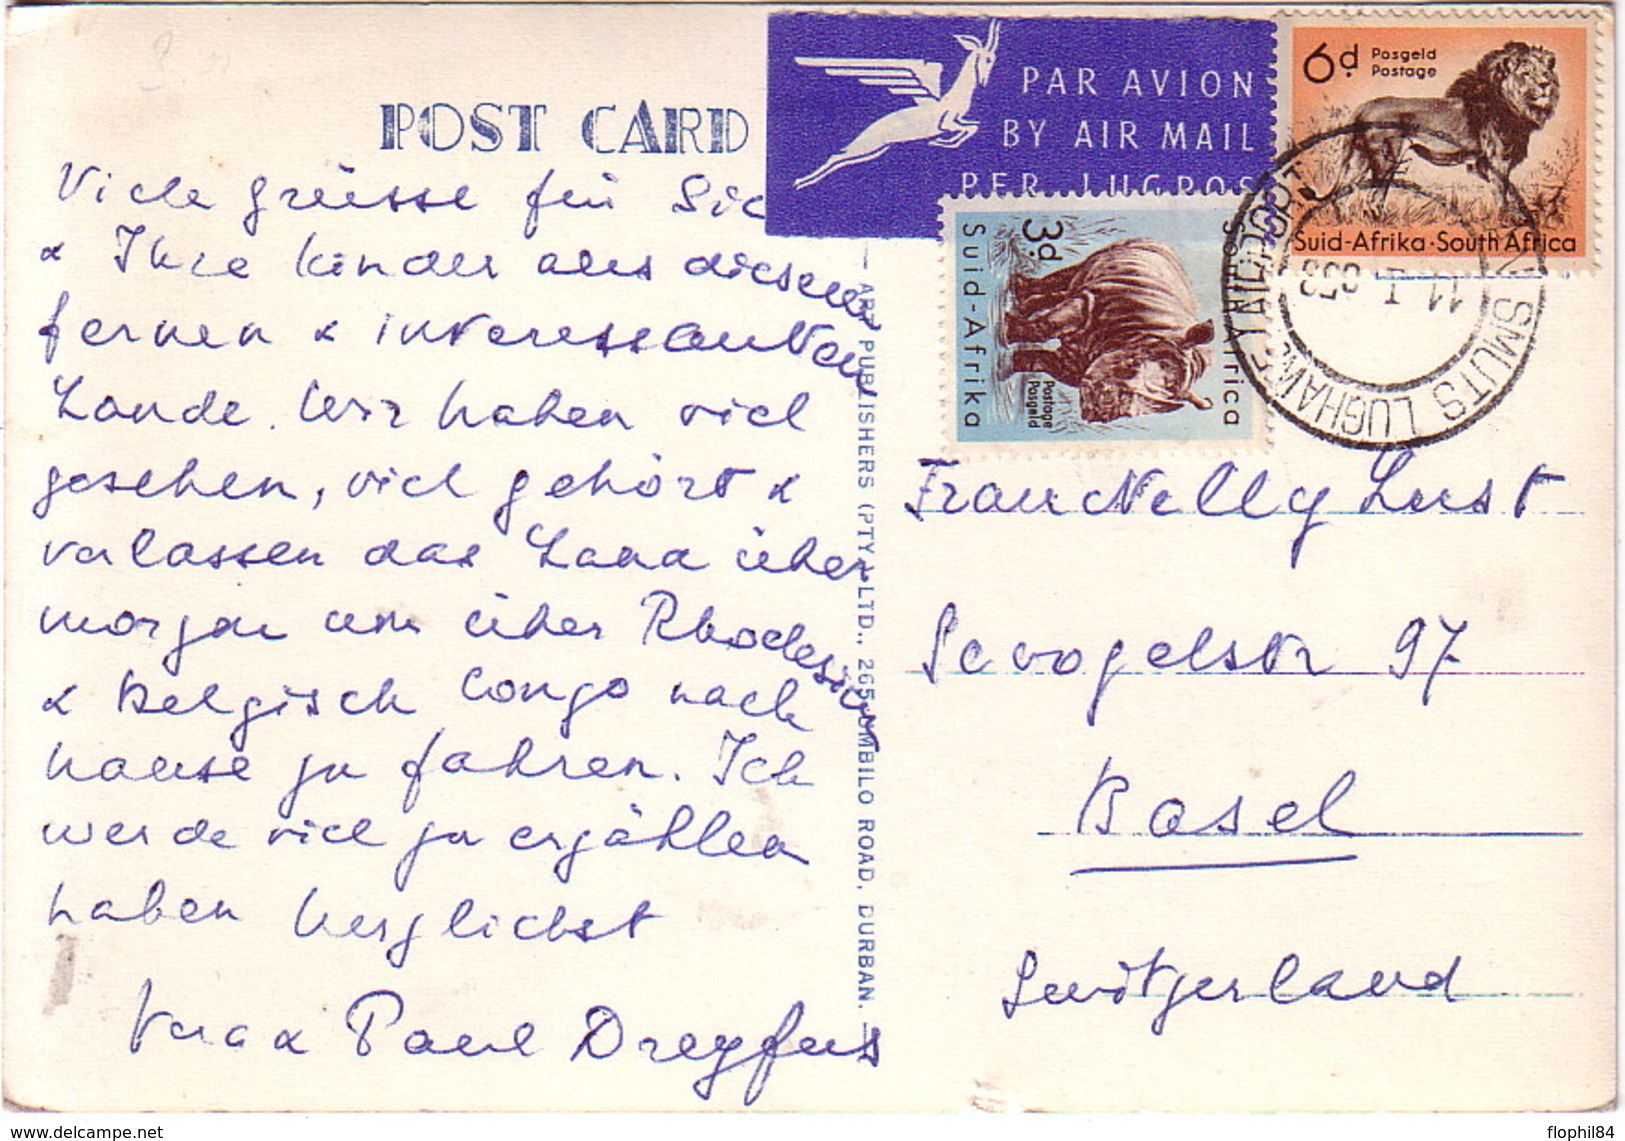 POST CARD
PAR AVION
BY AIR MAIL
PER LUGPOS
6d Posgeld
Postage
Suid-Afrika·South Africa
3d
Suid-Afrika
South Africa
Postage
Posgeld
SMUTS LUGHAWE
11 I 958
Viele Grüsse für Sie
& Ihre Kinder aus diesem
fernen & interessanten
Lande. Wir haben viel
gesehen, viel gehört &
verlassen das Land über
morgen um über Rhodesien
& Belgisch Congo nach
hause zu fahren. Ich
werde viel zu erzählen
haben herzlichst
Vera & Paul Dreyfus
ART PUBLISHERS (PTY.) LTD., 265 UMBILO ROAD, DURBAN.
Frau Nelly Lust
Sevogelstr 97
Basel
Switzerland
www.delcampe.net
flophil84